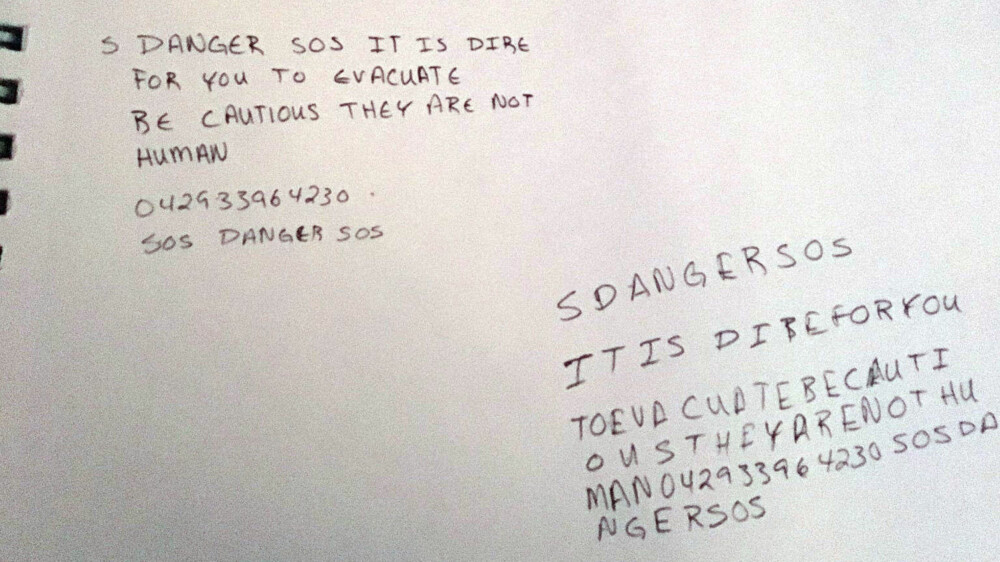 S DANGER SOS IT IS DIRE
FOR YOU TO EVACUATE
BE CAUTIOUS THEY ARE NOT
HUMAN
042933964230
SOS DANGER SOS
SDANGERSOS
ITIS DIREFORYOU
TOEVACUATEBECAUTI
OUSTHEYARENOTHU
MAN042933964230SOSDA
NGERSOS